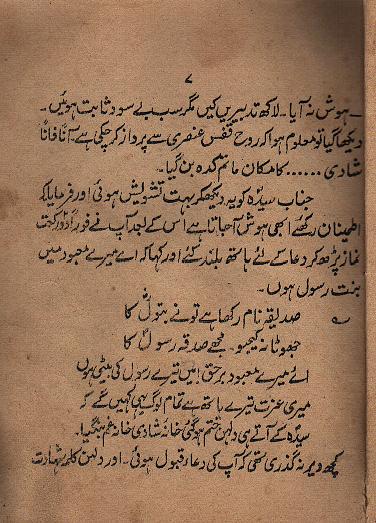 ۷
۔ ہوش نہ آیا۔ لاکھ تدبیریں کیں مگر سب بے سود ثابت ہوئیں۔
دیکھا گیا تو معلوم ہوا کہ روح قفس عنصری سے پرواز کر چکی ہے۔ آناً فاناً
شادی ...... کا مکان ماتم کدہ بن گیا۔
جناب سیدہؑ کو یہ دیکھکر بہت تشویش ہوئی اور فرمایا کہ
اطمینان رکھئے ابھی ہوش آجاتا ہے اس کے بعد آپ نے فوراً دو رکعت
نماز پڑھ کر دعا کے لئے ہاتھ بلند کئے اور کہا کہ اے میرے معبود میں
بنت رسول ہوں۔
صدیقہ نام رکھا ہے تو نے بتولؑ کا
جھوٹا نہ کیجیو۔ مجھے صدقہ رسولؐ کا
اے میرے معبود برحق! میں تیرے رسول کی بیٹی ہوں
میری عزت تیرے ہاتھ ہے تمام لوگ یہی کہیں گے کہ
سیدہؑ کے آتے ہی دلہن ختم ہو گئی خانہ شادی خانہ غم بنگیا۔
کچھ دیر نہ گذری تھی کہ آپ کی دعاء قبول ہوئی۔ اور دلہن کلمہ شہادت